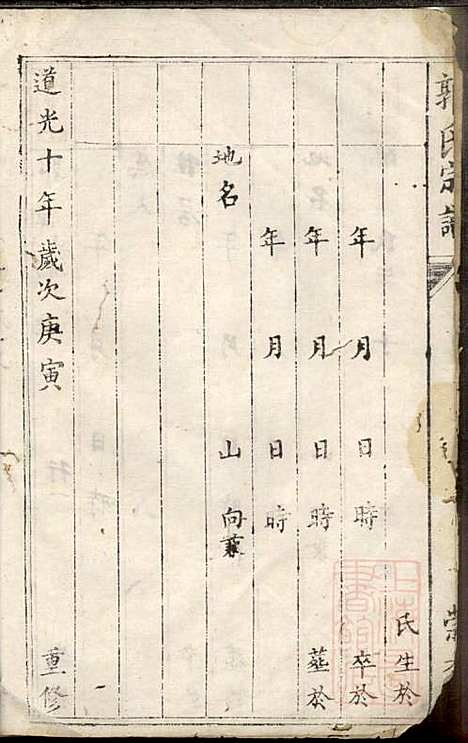 郭氏宗譜 崇
氏生於
年 月 日 時 卒於
年 月 日 時 塟於
年 月 日 時
地名 山 向兼
道光十年歲次庚寅 重修